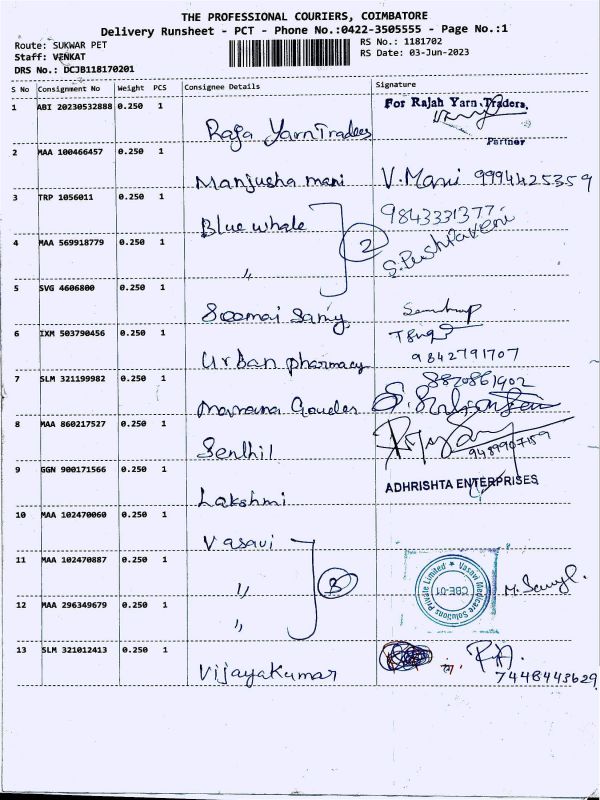 THE PROFESSIONAL COURIERS, COIMBATORE
Delivery Runsheet - PCT - Phone No.:0422-3505555 - Page No.:1
Route: SUKWAR PET
RS No.: 1181702
Staff: VENKAT
RS Date: 03-Jun-2023
DRS No.: DCJB118170201
S No Consignment No Weight PCS Consignee Details Signature
1 ABI 20230532888 0.250 1
For Rajah Yarn Traders,
Raja Yarn Tradees
Partner
2 MAA 100466457 0.250 1
Manjusha mani V. Mani 9994425359
3 TRP 1056011 0.250 1
Blue whale 9843331377
4 MAA 569918779 0.250 1
2 S. Pushpaveni
"
5 SVG 4606800 0.250 1
Soomai Samy
6 IXM 503790456 0.250 1
Urban pharmacy 9842791707
7 SLM 321199982 0.250 1
8820861902
Gouder
8 MAA 860217527 0.250 1
Senthil 9489907159
9 GGN 900171566 0.250 1
ADHRISHTA ENTERPRISES
Lakshmi
10 MAA 102470060 0.250 1
Vasavi
11 MAA 102470887 0.250 1
Vasavi Medicare Solutions Private Limited
CBE-01
" 3
12 MAA 296349679 0.250 1
"
13 SLM 321012413 0.250 1
Vijayakumar 7448443629